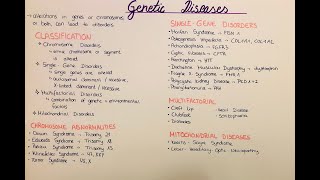 Genetic Diseases
• alterations in genes or chromosomes or both can lead to disorders
CLASSIFICATION
• Chromosome Disorders
• entire chromosome or segment is altered
• Single-Gene Disorders
• single genes are altered
• autosomal dominant / recessive
X-linked dominant / recessive
• Multifactorial Disorders
• combination of genetic + environmental factors
• Mitochondrial Disorders
CHROMOSOME ABNORMALITIES
• Down Syndrome - Trisomy 21
• Edwards Syndrome - Trisomy 18
• Patau Syndrome - Trisomy 13
• Klinefelter Syndrome - 47, XXY
• Turner Syndrome - 45, X
SINGLE-GENE DISORDERS
• Marfan Syndrome - FBN 1
• Osteogenesis Imperfecta - COL1A1, COL1A2
• Achondroplasia - FGFR3
• Cystic Fibrosis - CFTR
• Huntington - HTT
• Duchenne Muscular Dystrophy - dystrophin
• Fragile X Syndrome - FMR 1
• Polycystic Kidney Disease - PKD 1+2
• Phenylketonuria - PAH
MULTIFACTORIAL
• Cleft Lip
• Clubfoot
• Heart Disease
MITOCHONDRIAL DISEASES
• Leber Hereditary Optic Neuropathy